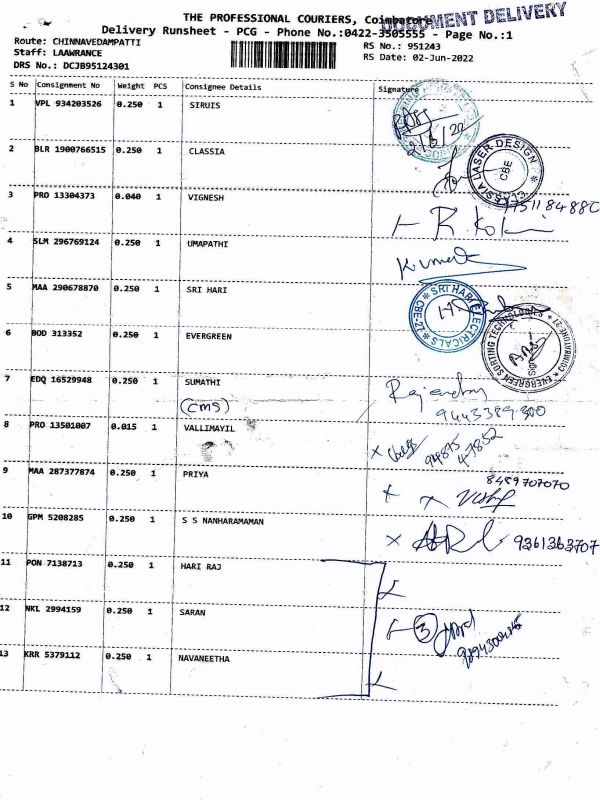 THE PROFESSIONAL COURIERS, Coimbatore
DOCUMENT DELIVERY
Delivery Runsheet - PCG - Phone No.:0422-3505555 - Page No.:1
Route: CHINNAVEDAMPATTI
RS No.: 951243
Staff: LAAWRANCE
RS Date: 02-Jun-2022
DRS No.: DCJB95124301
S No Consignment No Weight PCS Consignee Details Signature
1 VPL 934203526 0.250 1 SIRUIS
2/6/22
2 BLR 1900766515 0.250 1 CLASSIA
LASER DESIGN
CBE
3 PRO 13304373 0.040 1 VIGNESH
4 SLM 296769124 0.250 1 UMAPATHI
5 MAA 290678870 0.250 1 SRI HARI
SRI HARI ELECTRICALS
6 BOD 313352 0.250 1 EVERGREEN
EVERGREEN SORTING TECHNOLOGIES
7 EDQ 16529948 0.250 1 SUMATHI
(CMS)
9443389300
8 PRO 13501007 0.015 1 VALLIMAYIL
94875
47852
9 MAA 287377874 0.250 1 PRIYA
8489707070
10 GPM 5208285 0.250 1 S S NANHARAMAMAN
9361363707
11 PON 7138713 0.250 1 HARI RAJ
12 NKL 2994159 0.250 1 SARAN
3
13 KRR 5379112 0.250 1 NAVANEETHA